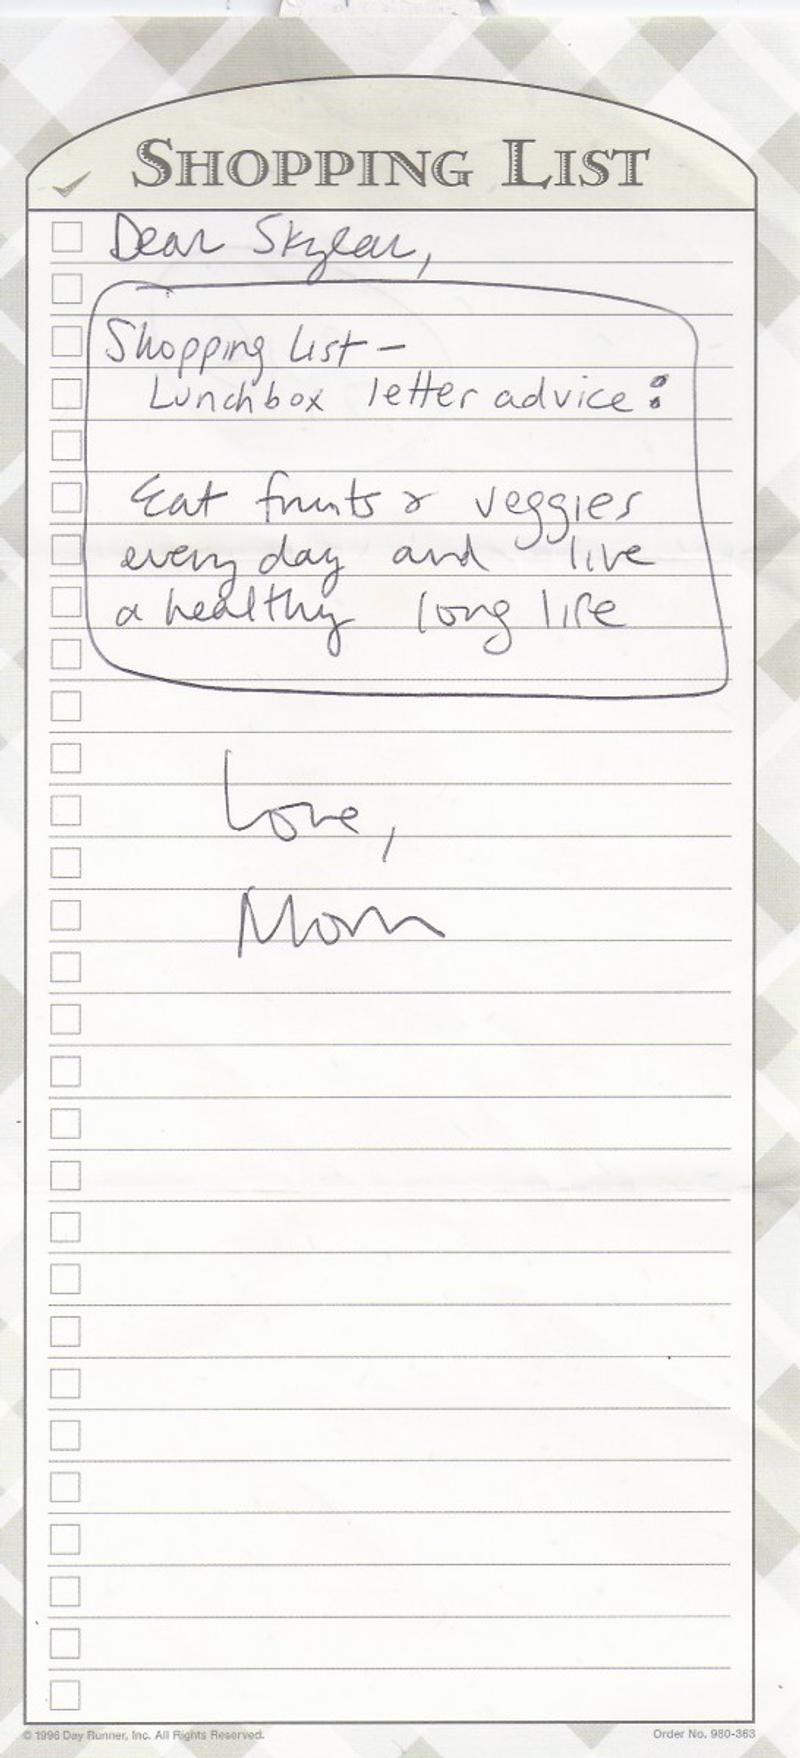 SHOPPING LIST
Dear Skylar,
Shopping list –
Lunchbox letter advice:
Eat fruits & veggies
every day and live
a healthy long life
Love,
Mom
© 1996 Day Runner, Inc. All Rights Reserved.
Order No. 980-363